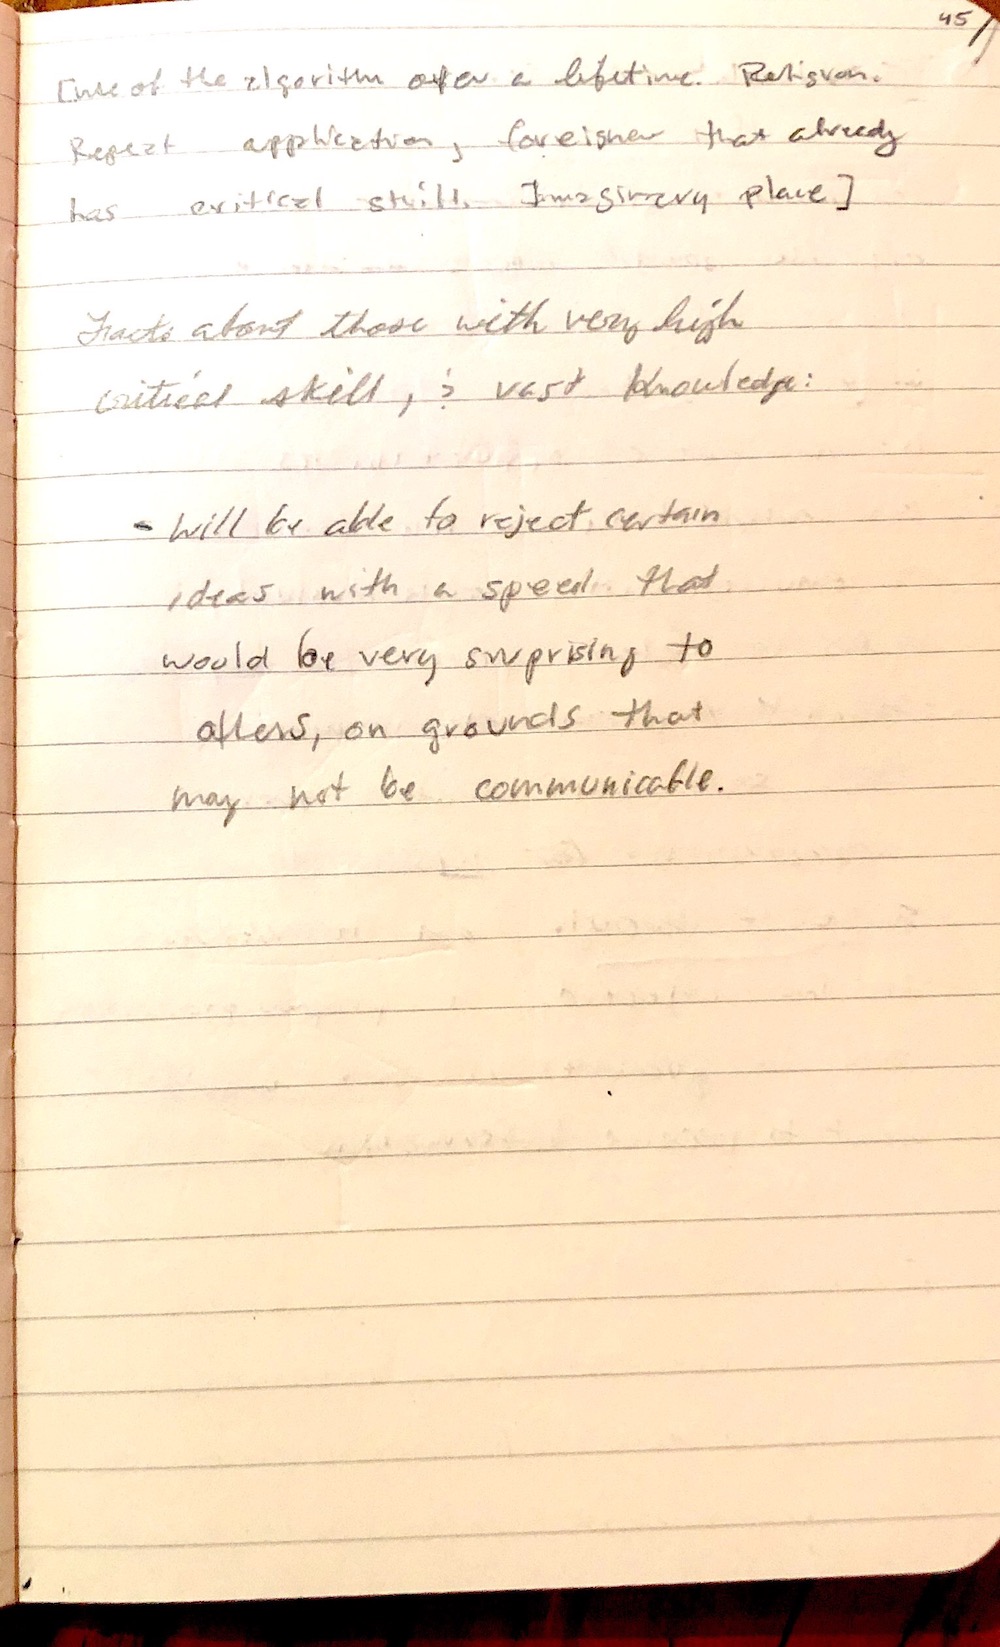 45
[Use of the algorithm over a lifetime. Religion.
Repeat application, foreigner that already
has critical skill. Imaginary place]
Facts about those with very high
critical skill, & vast knowledge:
- Will be able to reject certain
ideas with a speed that
would be very surprising to
others, on grounds that
may not be communicable.